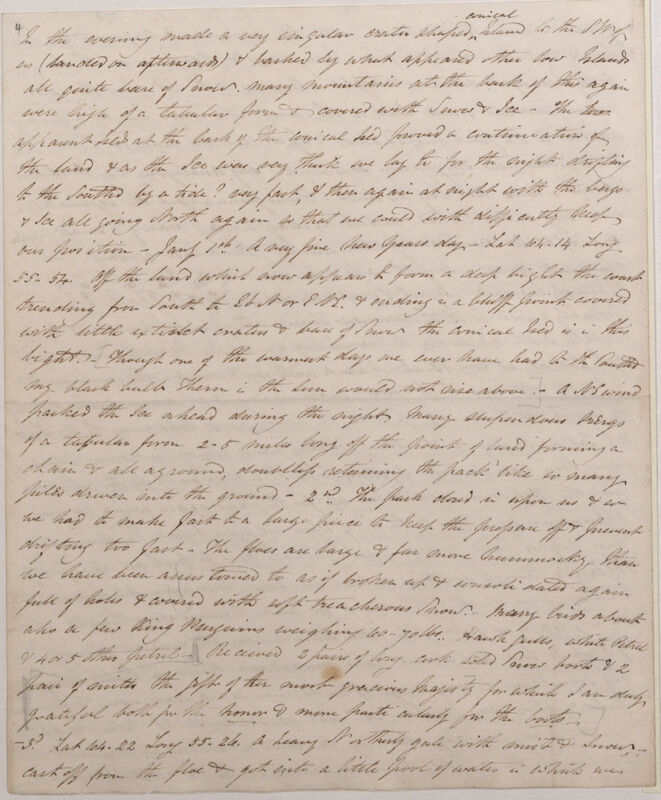 4
conical
In the evening made a very singular crater shaped island to the SW of
us (landed on afterwards) & backed by what appeared other low Islands
all quite bare of Snow. many mountains at the back of this again
were high of a tabular form & covered with Snow & Ice - The two
apparent islds at the back of the conical Isld proved a continuation of
the land & as the Ice was very thick we lay to for the night drifting
to the Southd by a tide? very fast, & then again at night with the bergs
& Ice all going North again so that we could with difficulty keep
our position - Jany 1st A very fine New Years day - Lat 64.14 Long
55.54 Off the land which now appears to form a deep bight the coast
trending from South to EbN or ENE. & ending in a bluff point covered
with little extinct craters & bare of Snow the conical Isld is in this
bight. - [Though one of the warmest days we ever have had to the Southd
my black bulb Therm in the Sun would not rise above -] - A NE wind
packed the Ice ahead during the night Many stupendous bergs
of a tabular form 2-5 miles long off the point of land forming a
chain & all aground, doubtless retaining the pack like so many
piles driven into the ground - 2nd The pack closed in upon us & so
we had to make fast to a large piece to keep the pressure off & prevent
drifting too fast - The floes are large & far more hummocky than
we have been accustomed to as if broken up & consolidated again
full of holes & covered with soft treacherous Snow - Many birds about
also a few King Penguins weighing 60-70 lbs. Hawk gulls, white Petrel
& 4 or 5 other petrel - Received 2 pairs of long cork soled Snow boots & 2
pair of mitts the gift of Her most gracious Majesty for which I am duly
grateful both for the honor & more particularly for the boots
- 3d Lat 64.22 Long 55.26. A heavy Northerly gale with mist & Snow, -
cast off from the floe & got into a little pool of water in which we